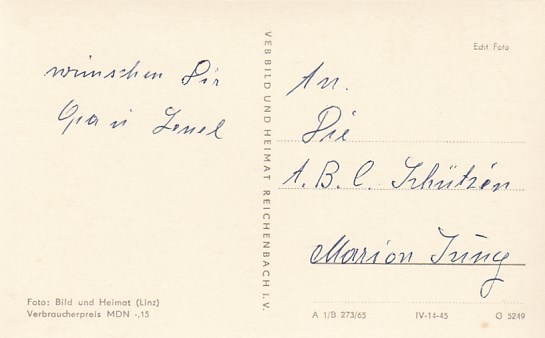 wünschen Dir
Opa u
VEB BILD UND HEIMAT REICHENBACH I.V.
Echt Foto
An.
Die
A.B.C. Schützen
Marion Jung
Foto: Bild und Heimat (Linz)
Verbraucherpreis MDN -,15
A 1/B 273/65 IV-14-45 G 5249